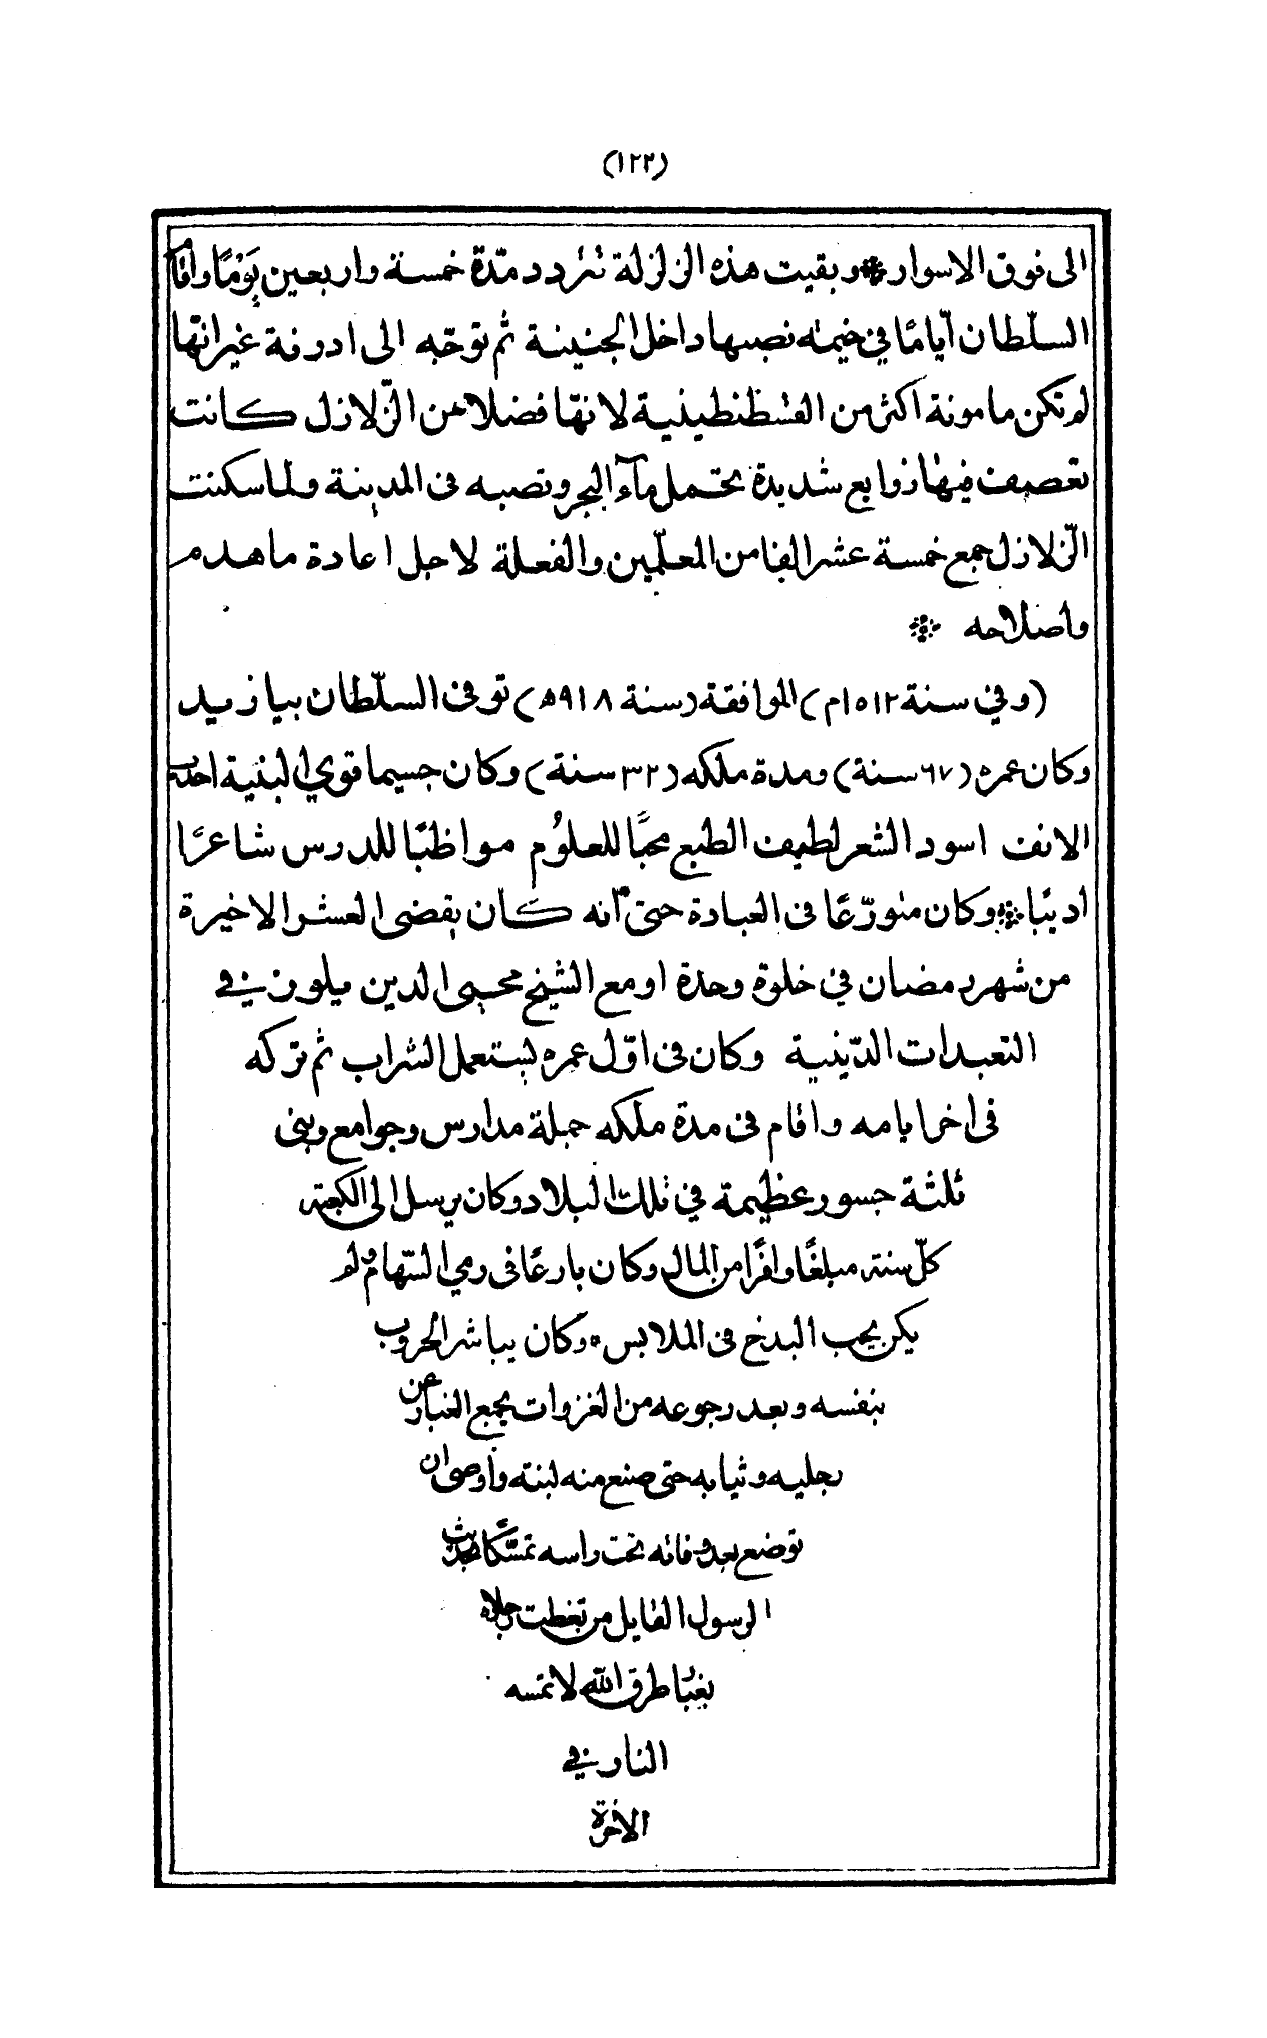 (١٢٣)
الى فوق الاسوار * وبقيت هذه الزلزلة تتردد مدّة خمسة واربعين يَوْمًا واقام
السلّطان أيامًا في خيمته نصبها داخل الجنينة ثم توجّه الى ادرنة غير انهّا
لم تكن مامونة اكثر من القسْطنطينية لانهّا فضلاً عن الزّلازل كانت
تعصف فيها زوابع شديدة تحتمل مآء البحر وتصبه في المدينة ولما سكنت
الزّلازل جمع خمسة عشر الفا من المعلّمين والفعلة لاجل اعادة ما هدم
واصلاحه *
(وفي سنة ١٥١٢م) الموافقة (سنة ٩١٨ﻫ) توفى السلّطان بيازيد
وكان عمره (٦٧ سنة) ومدة ملكه (٣٢ سنة) وكان جسيما قوي البنية احدب
الانف اسود الشعر لطيف الطبع محبًّا للعلوُم مواظبًا للدرس شاعرًا
أديبًا * وكان متورّعًا في العبادة حتى أنه كان يقضى العشر الاخيرة
من شهر رمضان في خلوة وحدة او مع الشيخ محيى الدين ميلون في
التعبدات الدّينية وكان في اوّل عمره يستعمل الشراب ثم تركه
في اخر ايامه واقام في مدة ملكه جملة مدارس وجوامع وبنى
ثلثة جسور عظيمة في تلك البلاد وكان يرسل الى الكعبة
كلّ سنة مبلغًا وافرًا من المال وكان بارعًا في رمي السّهام ولم
يكن يحب البذخ في الملابس * وكان يباشر الحروب
بنفسه وبعد رجوعه من الغزوات يجمع الغبار عن
رجليه وثيابه حتى صنع منه لبنة واوصى ان
توضع بعد وفاته تحت راسه تمسّكا بحديث
الرسول القايل من تغطت رجلاه
بغبار طرق الله لا تمسه
النار في
الاخرة